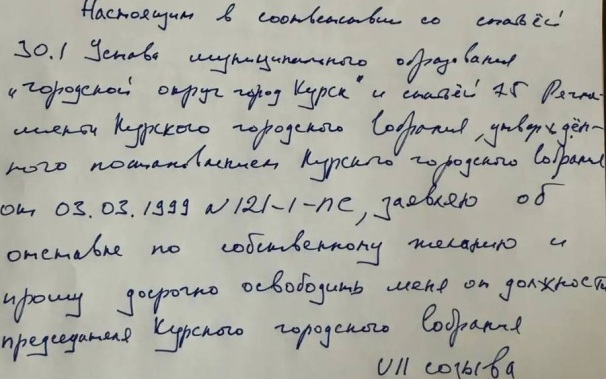 Настоящим в соответствии со статьёй
30.1 Устава муниципального образования
„городской округ город Курск" и статьёй 75 Регла-
мента Курского городского Собрания, утверждён-
ного постановлением Курского городского Собрания
от 03.03.1999 N121-1-ПС, заявляю об
отставке по собственному желанию и
прошу досрочно освободить меня от должности
председателя Курского городского Собрания
VII созыва